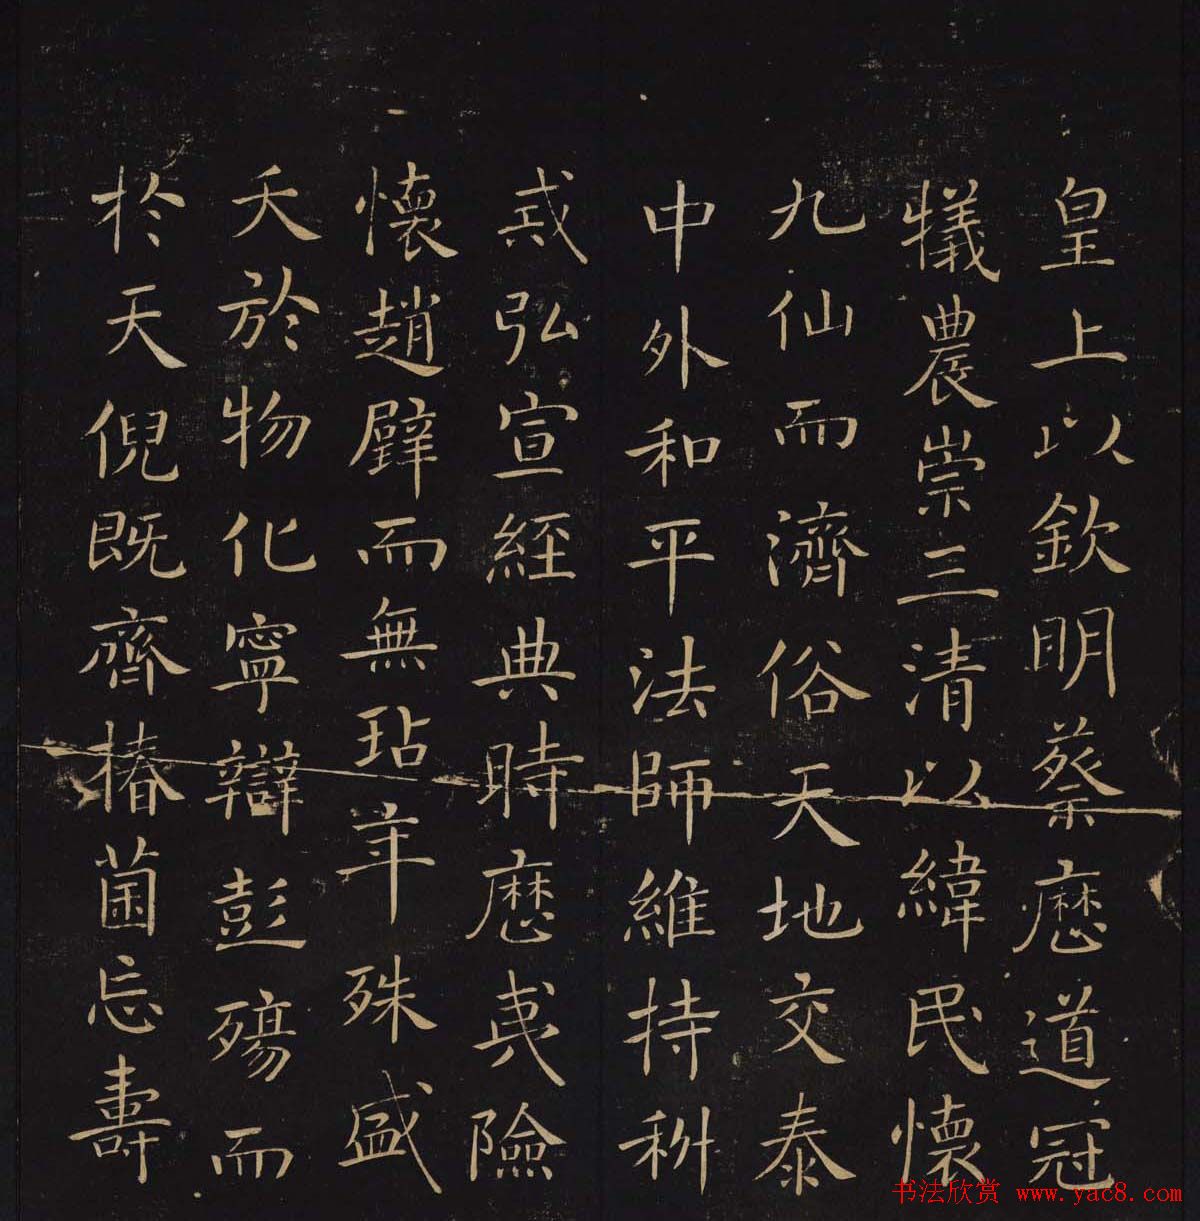 皇上以欽明蔡曆道冠
犧農崇三清以緯民懷
九仙而濟俗天地交泰
中外和平法師維持科
戒弘宣經典時歷夷險
懷趙璧而無玷年殊盛
夭於物化寧辯彭殤而
於天倪既齊椿菌忘壽
书法欣赏 www.yac8.com